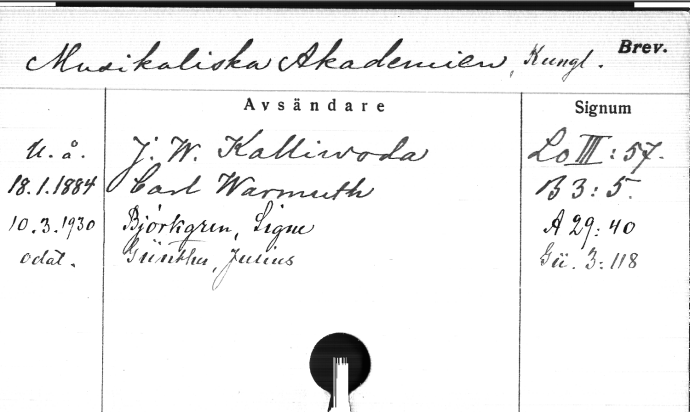 Musikaliska Akademien, Kungl. Brev.
Avsändare Signum
U. å. J. W. Kalliwoda Lo III: 57.
18.1.1884 Carl Warmuth B 3: 5.
10.3.1930 Björkgren, Signe A 29: 40
odat. Günther, Julius Gü. 3: 118